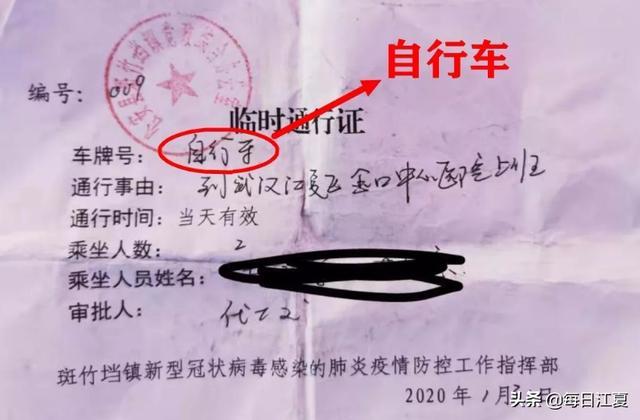 自行车
编号: 009
临时通行证
车牌号: 自行车
通行事由: 到武汉江夏区金口中心医院上班
通行时间: 当天有效
乘坐人数: 2
乘坐人员姓名:
审批人:
斑竹垱镇新型冠状病毒感染的肺炎疫情防控工作指挥部
2020年1月30日
头条 @每日江夏